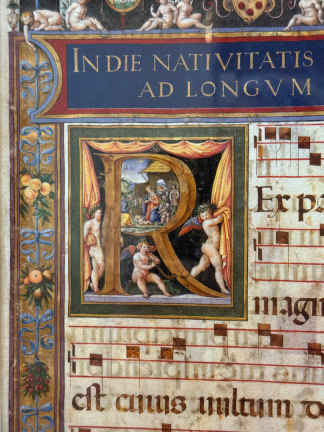 IN DIE NATIVITATIS
AD LONGVM
R Ex pa
magn
est cuius uultum d